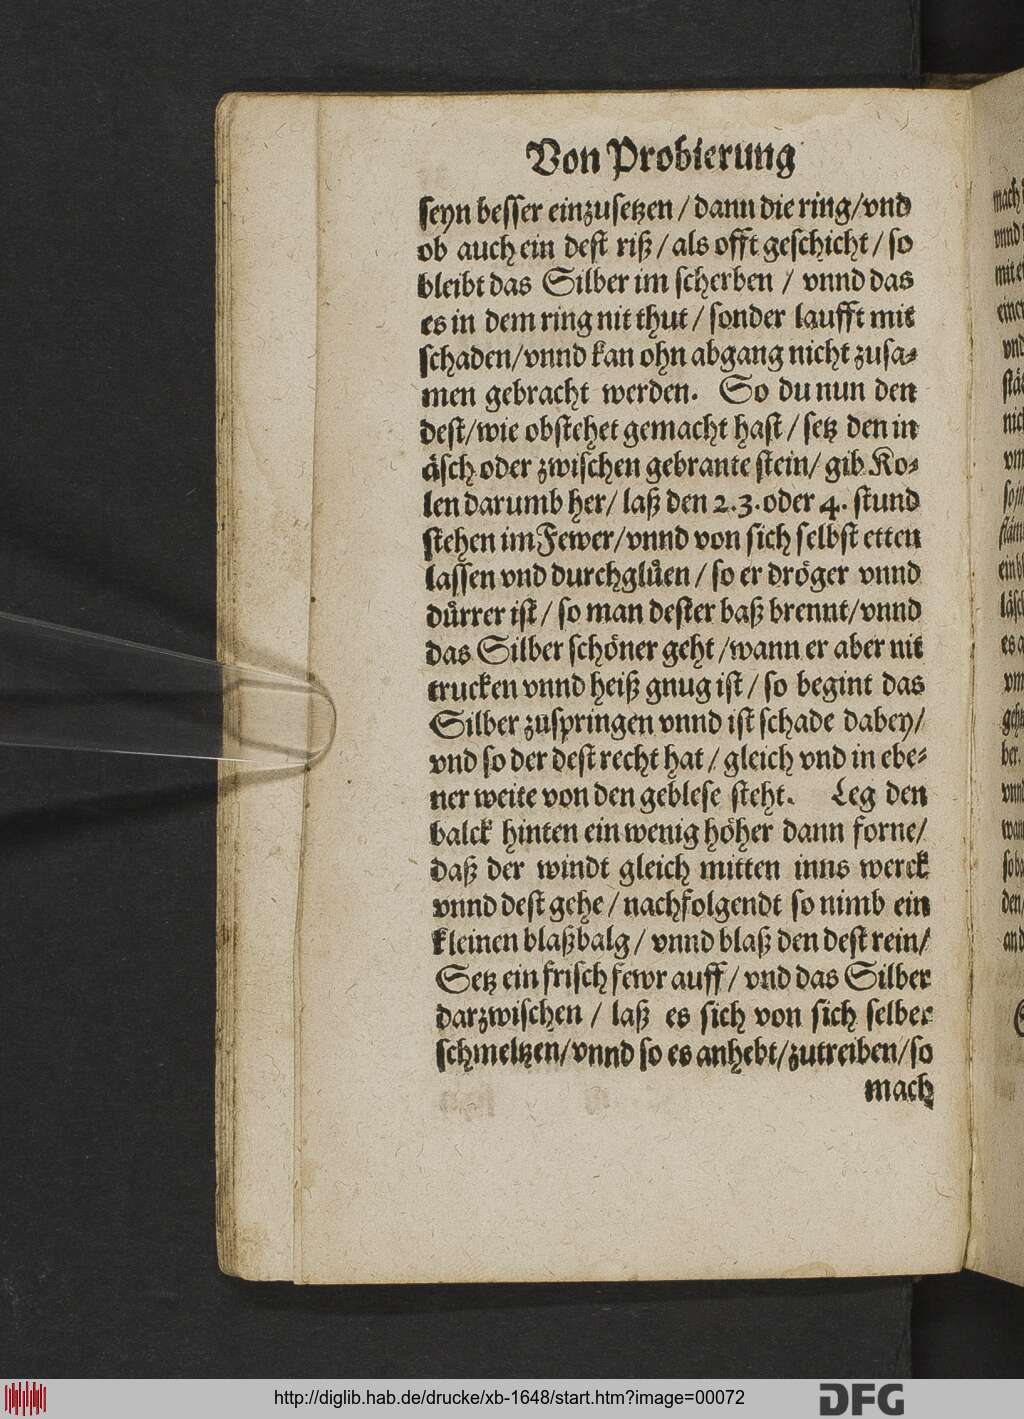 Von Probierung
seyn besser einzusetzen / dann die ring/vnd
ob auch ein dest riß / als offt geschicht / so
bleibt das Silber im scherben / vnnd das
es in dem ring nit thut / sonder laufft mit
schaden/vnnd kan ohn abgang nicht zusa⸗
men gebracht werden. So du nun den
dest/wie obstehet gemacht hast / setz den in
äsch oder zwischen gebrante stein/ gib Ko⸗
len darumb her/ laß den 2.3. oder 4. stund
stehen im Fewer/vnnd von sich selbst etten
lassen vnd durchglüen / so er dröger vnnd
dürrer ist / so man dester baß brennt/vnnd
das Silber schöner geht /wann er aber nit
trucken vnnd heiß gnug ist / so begint das
Silber zuspringen vnnd ist schade dabey/
vnd so der dest recht hat / gleich vnd in ebe⸗
ner weite von den geblese steht. Leg den
balck hinten ein wenig höher dann forne/
daß der windt gleich mitten inns werck
vnnd dest gehe / nachfolgendt so nimb ein
kleinen blaßbalg / vnnd blaß den dest rein/
Setz ein frisch fewr auff / vnd das Silber
darzwischen / laß es sich von sich selber
schmeltzen/vnnd so es anhebt/zutreiben/so
mach
http://diglib.hab.de/drucke/xb-1648/start.htm?image=00072
DFG